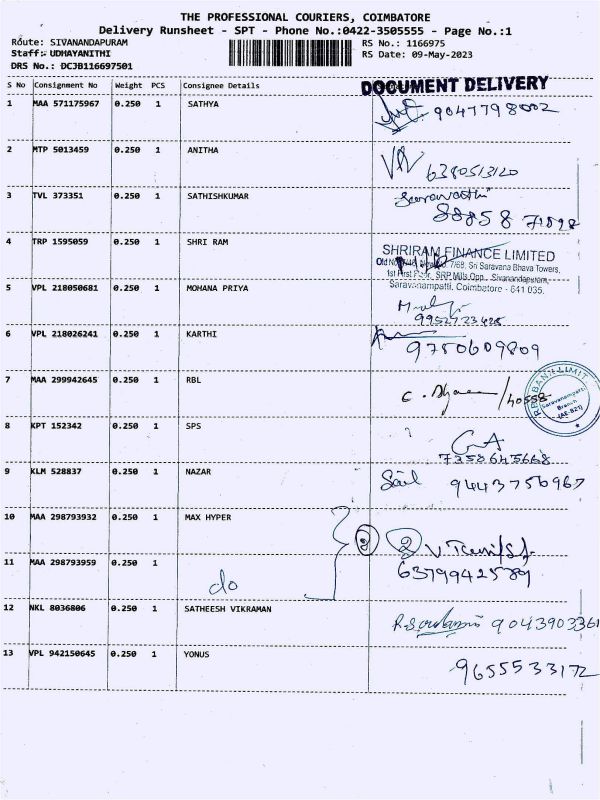 THE PROFESSIONAL COURIERS, COIMBATORE
Delivery Runsheet - SPT - Phone No.:0422-3505555 - Page No.:1
Route: SIVANANDAPURAM RS No.: 1166975
Staff: UDHAYANITHI RS Date: 09-May-2023
DRS No.: DCJB116697501
DOCUMENT DELIVERY
S No Consignment No Weight PCS Consignee Details
1 MAA 571175967 0.250 1 SATHYA 9047798002
2 MTP 5013459 0.250 1 ANITHA 6380513120
3 TVL 373351 0.250 1 SATHISHKUMAR Saraswathi
88858 71828
4 TRP 1595059 0.250 1 SHRI RAM
SHRIRAM FINANCE LIMITED
7/68, Sri Saravana Bhava Towers,
1st Floor, SRP Mills Opp., Sivanandapuram,
Saravanampatti, Coimbatore - 641 035.
5 VPL 218050681 0.250 1 MOHANA PRIYA
9952723425
6 VPL 218026241 0.250 1 KARTHI
9750609809
7 MAA 299942645 0.250 1 RBL /40558
RBL BANK LIMIT
Saravanampatti
Branch
(AE-827)
8 KPT 152342 0.250 1 SPS
7358645668
9 KLM 528837 0.250 1 NAZAR 9443756967
10 MAA 298793932 0.250 1 MAX HYPER 2
11 MAA 298793959 0.250 1 do 63799425789
12 NKL 8036806 0.250 1 SATHEESH VIKRAMAN 9043903361
13 VPL 942150645 0.250 1 YONUS 9655533172